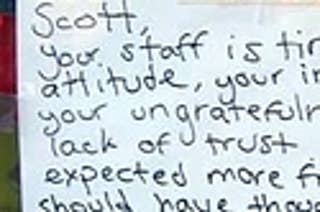 Scott,
your staff is tir
attitude, your in
your ungratefuln
lack of trust
expected more f
should have thou